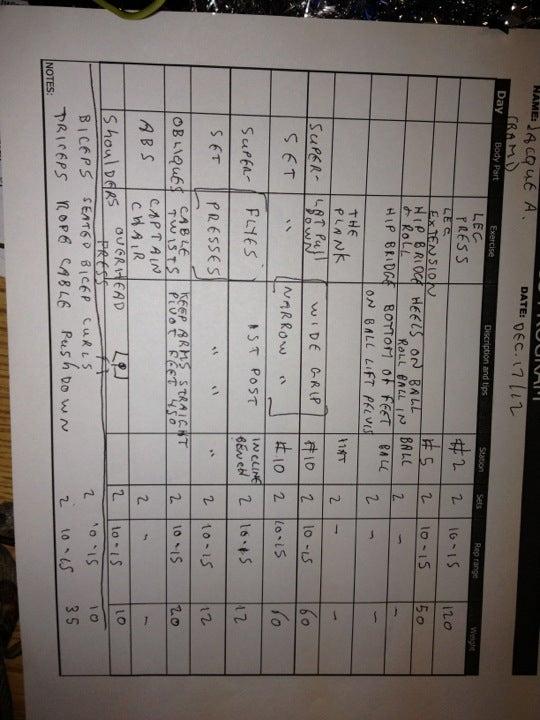 PROGRAM
NAME: JACQUE A. DATE: DEC. 17/12
Day Body Part Exercise Discription and tips Station Sets Rep range Weight
LEG PRESS #2 2 10-15 120
LEG EXTENSION #5 2 10-15 50
HIP BRIDGE & ROLL HEELS ON BALL ROLL BALL IN BALL 2 - -
HIP BRIDGE BOTTOM OF FEET ON BALL LIFT PELVIS BALL 2 - -
THE PLANK MAT 2 - -
SUPER- LAT PULL DOWN WIDE GRIP #10 2 10-15 60
SET " NARROW " #10 2 10-15 60
SUPER- FLYES 1ST POST INCLINE BENCH 2 10-15 12
SET PRESSES " " " 2 10-15 12
OBLIQUES CABLE TWISTS KEEP ARMS STRAIGHT PIVOT FEET 45° 2 10-15 20
ABS CAPTAIN CHAIR 2 - -
SHOULDERS OVERHEAD PRESS 2 10-15 10
BICEPS SEATED BICEP CURLS 2 10-15 10
TRICEPS ROPE CABLE PUSHDOWN 2 10-15 35
NOTES: